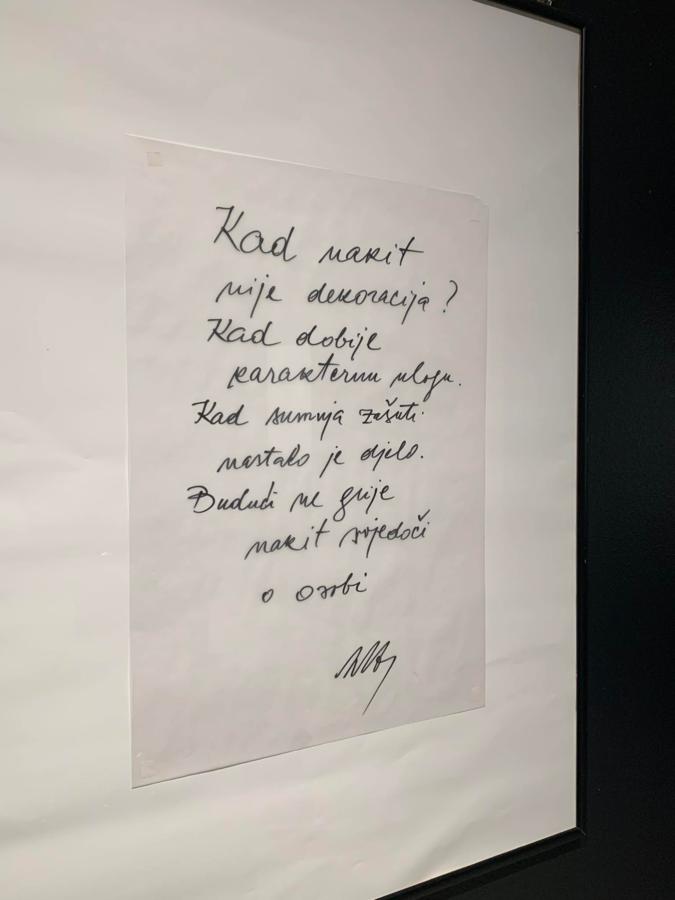 Kad nakit
nije dekoracija?
Kad dobije
karakternu ulogu.
Kad sumnja zašuti
nastalo je djelo.
Budući ne grije
nakit svjedoči
o osobi